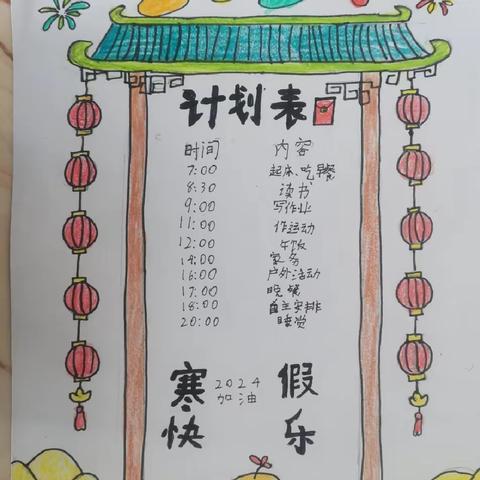 计划表
时间 内容
7:00 起床、吃早餐
8:30 读书
9:00 写作业
11:00 作运动
12:00 午饭
14:00 家务
16:00 户外活动
17:00 晚餐
18:00 自主安排
20:00 睡觉
寒 2024 假
加油
快 乐